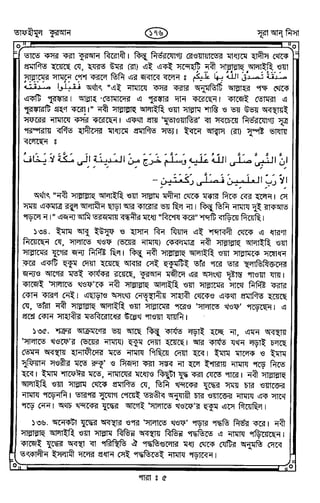 তাফহীমুল কুরআন
১৭৬
সূরা আন নিসা
তাতে কসর করা কুরআন বিরোধী। কিন্তু নির্ভরযোগ্য রেওয়ায়াতের মাধ্যমে হাদীস থেকে
প্রমাণিত হয়েছে যে, হযরত উমর (রা) এই একই সন্দেহটি নবী সাল্লাল্লাহু আলাইহি ওয়া
সাল্লামের সামনে পেশ করলে তিনি এর জবাবে বলেন : صَدَقَةٌ تَصَدَّقَ اللّٰهُ بِهَا عَلَيْكُمْ
فَاقْبَلُوا صَدَقَتَهُ অর্থাৎ "এই নামাযে কসর করার অনুমতিটি আল্লাহর পক্ষ থেকে
একটি পুরস্কার। আল্লাহ তোমাদের এ পুরস্কার দান করেছেন। কাজেই তোমরা এ
পুরস্কারটি গ্রহণ করো।" নবী সাল্লাল্লাহু আলাইহি ওয়া সাল্লাম শান্তি ও ভয় উভয় অবস্থায়ই
সফরের নামাযে কসর করেছেন। একথা প্রায় 'মুতাওয়াতির' বা সবচেয়ে নির্ভরযোগ্য সূত্র
পরম্পরায় বর্ণিত হাদীসের মাধ্যমে প্রমাণিত সত্য। ইবনে আব্বাস (রা) সুস্পষ্ট ভাষায়
বলেছেন :
اِنَّ النَّبِيَّ صَلَّى اللّٰهُ عَلَيْهِ وَسَلَّمَ خَرَجَ مِنَ الْمَدِيْنَةِ اِلٰى مَكَّةَ لَا يَخَافُ
اِلَّا رَبَّ الْعٰلَمِيْنَ فَصَلّٰى رَكْعَتَيْنِ -
অর্থাৎ "নবী সাল্লাল্লাহু আলাইহি ওয়া সাল্লাম মদীনা থেকে মক্কার দিকে বের হলেন। সে
সময় একমাত্র রব্বুল আলামীন ছাড়া আর কারোর ভয় ছিল না। কিন্তু তিনি নামায দুই রাকআত
পড়লেন।" এজন্য আমি তরজমায় বন্ধনীর মধ্যে "বিশেষ করে" শব্দটি বাড়িয়ে দিয়েছি।
১৩৪. ইমাম আবু ইউসুফ ও হাসান বিন যিয়াদ এই শব্দাবলী থেকে এ ধারণা
নিয়েছেন যে, সালাতে খওফ (ভয়ের নামায) কেবলমাত্র নবী সাল্লাল্লাহু আলাইহি ওয়া
সাল্লামের যুগের জন্য নির্দিষ্ট ছিল। কিন্তু নবী সাল্লাল্লাহু আলাইহি ওয়া সাল্লামকে সম্বোধন
করে একটি হুকুম দেয়া হয়েছে আবার সেই হুকুমটিই তাঁর পরে তার স্থলাভিষিক্তদের
জন্যও আগের মতই কার্যকর রয়েছে, কুরআন মজীদে এর অসংখ্য দৃষ্টান্ত পাওয়া যায়।
কাজেই 'সালাতে খওফ'কে নবী সাল্লাল্লাহু আলাইহি ওয়া সাল্লামের সাথে নির্দিষ্ট করার
কোন কারণ নেই। এছাড়াও অসংখ্য নেতৃস্থানীয় সাহাবী থেকেও একথা প্রমাণিত হয়েছে
যে, তাঁরা নবী সাল্লাল্লাহু আলাইহি ওয়া সাল্লামের পরেও 'সালাতে খওফ' পড়েছেন। এ
প্রশ্নে কোন সাহাবীর মতবিরোধের উল্লেখ পাওয়া যায়নি।
১৩৫. শত্রুর আক্রমণের ভয় আছে কিন্তু কার্যত লড়াই হচ্ছে না, এমন অবস্থায়
'সালাতে খওফে'র (ভয়ের নামায) হুকুম দেয়া হয়েছে। আর কার্যত যখন লড়াই চলছে
তেমন অবস্থায় হানাফীদের মতে নামায পিছিয়ে দেয়া হবে। ইমাম মালেক ও ইমাম
সুফিয়ান সওরীর মতে রুকূ' ও সিজদা করা সম্ভব না হলে ইশারায় নামায পড়ে নিতে
হবে। ইমাম শাফেঈর মতে, নামাযের মধ্যেও কিছুটা যুদ্ধ করা যেতে পারে। নবী সাল্লাল্লাহু
আলাইহি ওয়া সাল্লাম থেকে প্রমাণিত যে, তিনি খন্দকের যুদ্ধের সময় চার ওয়াক্তের
নামায পড়েননি। তারপর সুযোগ পেয়েই তরতীব অনুযায়ী চার ওয়াক্তের নামায এক সাথে
পড়ে নেন। অথচ খন্দকের যুদ্ধের আগেই 'সালাতে খওফে'র হুকুম এসে গিয়েছিল।
১৩৬. অনেকটা যুদ্ধের অবস্থার ওপর 'সালাতে খওফ' পড়ার পদ্ধতি নির্ভর করে। নবী
সাল্লাল্লাহু আলাইহি ওয়া সাল্লাম বিভিন্ন অবস্থায় বিভিন্ন পদ্ধতিতে এ নামায পড়িয়েছেন।
কাজেই যুদ্ধের অবস্থা বা পরিস্থিতি ঐ পদ্ধতিগুলোর মধ্য থেকে যেটির অনুমতি দেবে
তৎকালীন ইসলামী দলের প্রধান সেই পদ্ধতিতেই নামায পড়াবেন।
পারা : ৫